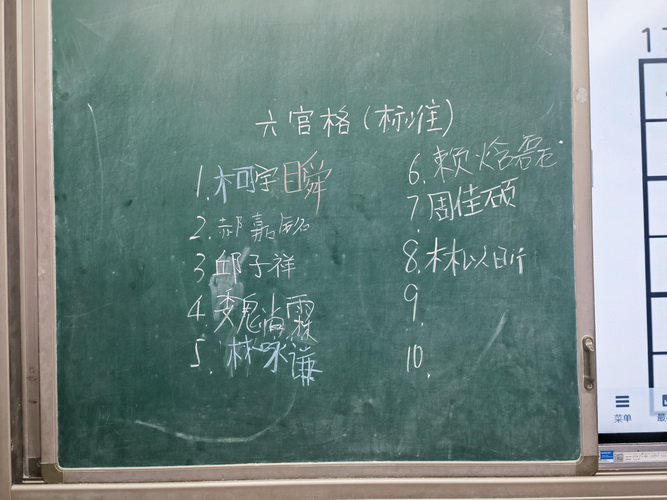 六官格(标准)
1. 柯宇瞬
2. 郝嘉铭
3 邱子祥
4. 魏尚霖
5. 林咏谦
6. 赖焓磊
7. 周佳硕
8. 林以昕
9.
10.
17
菜单